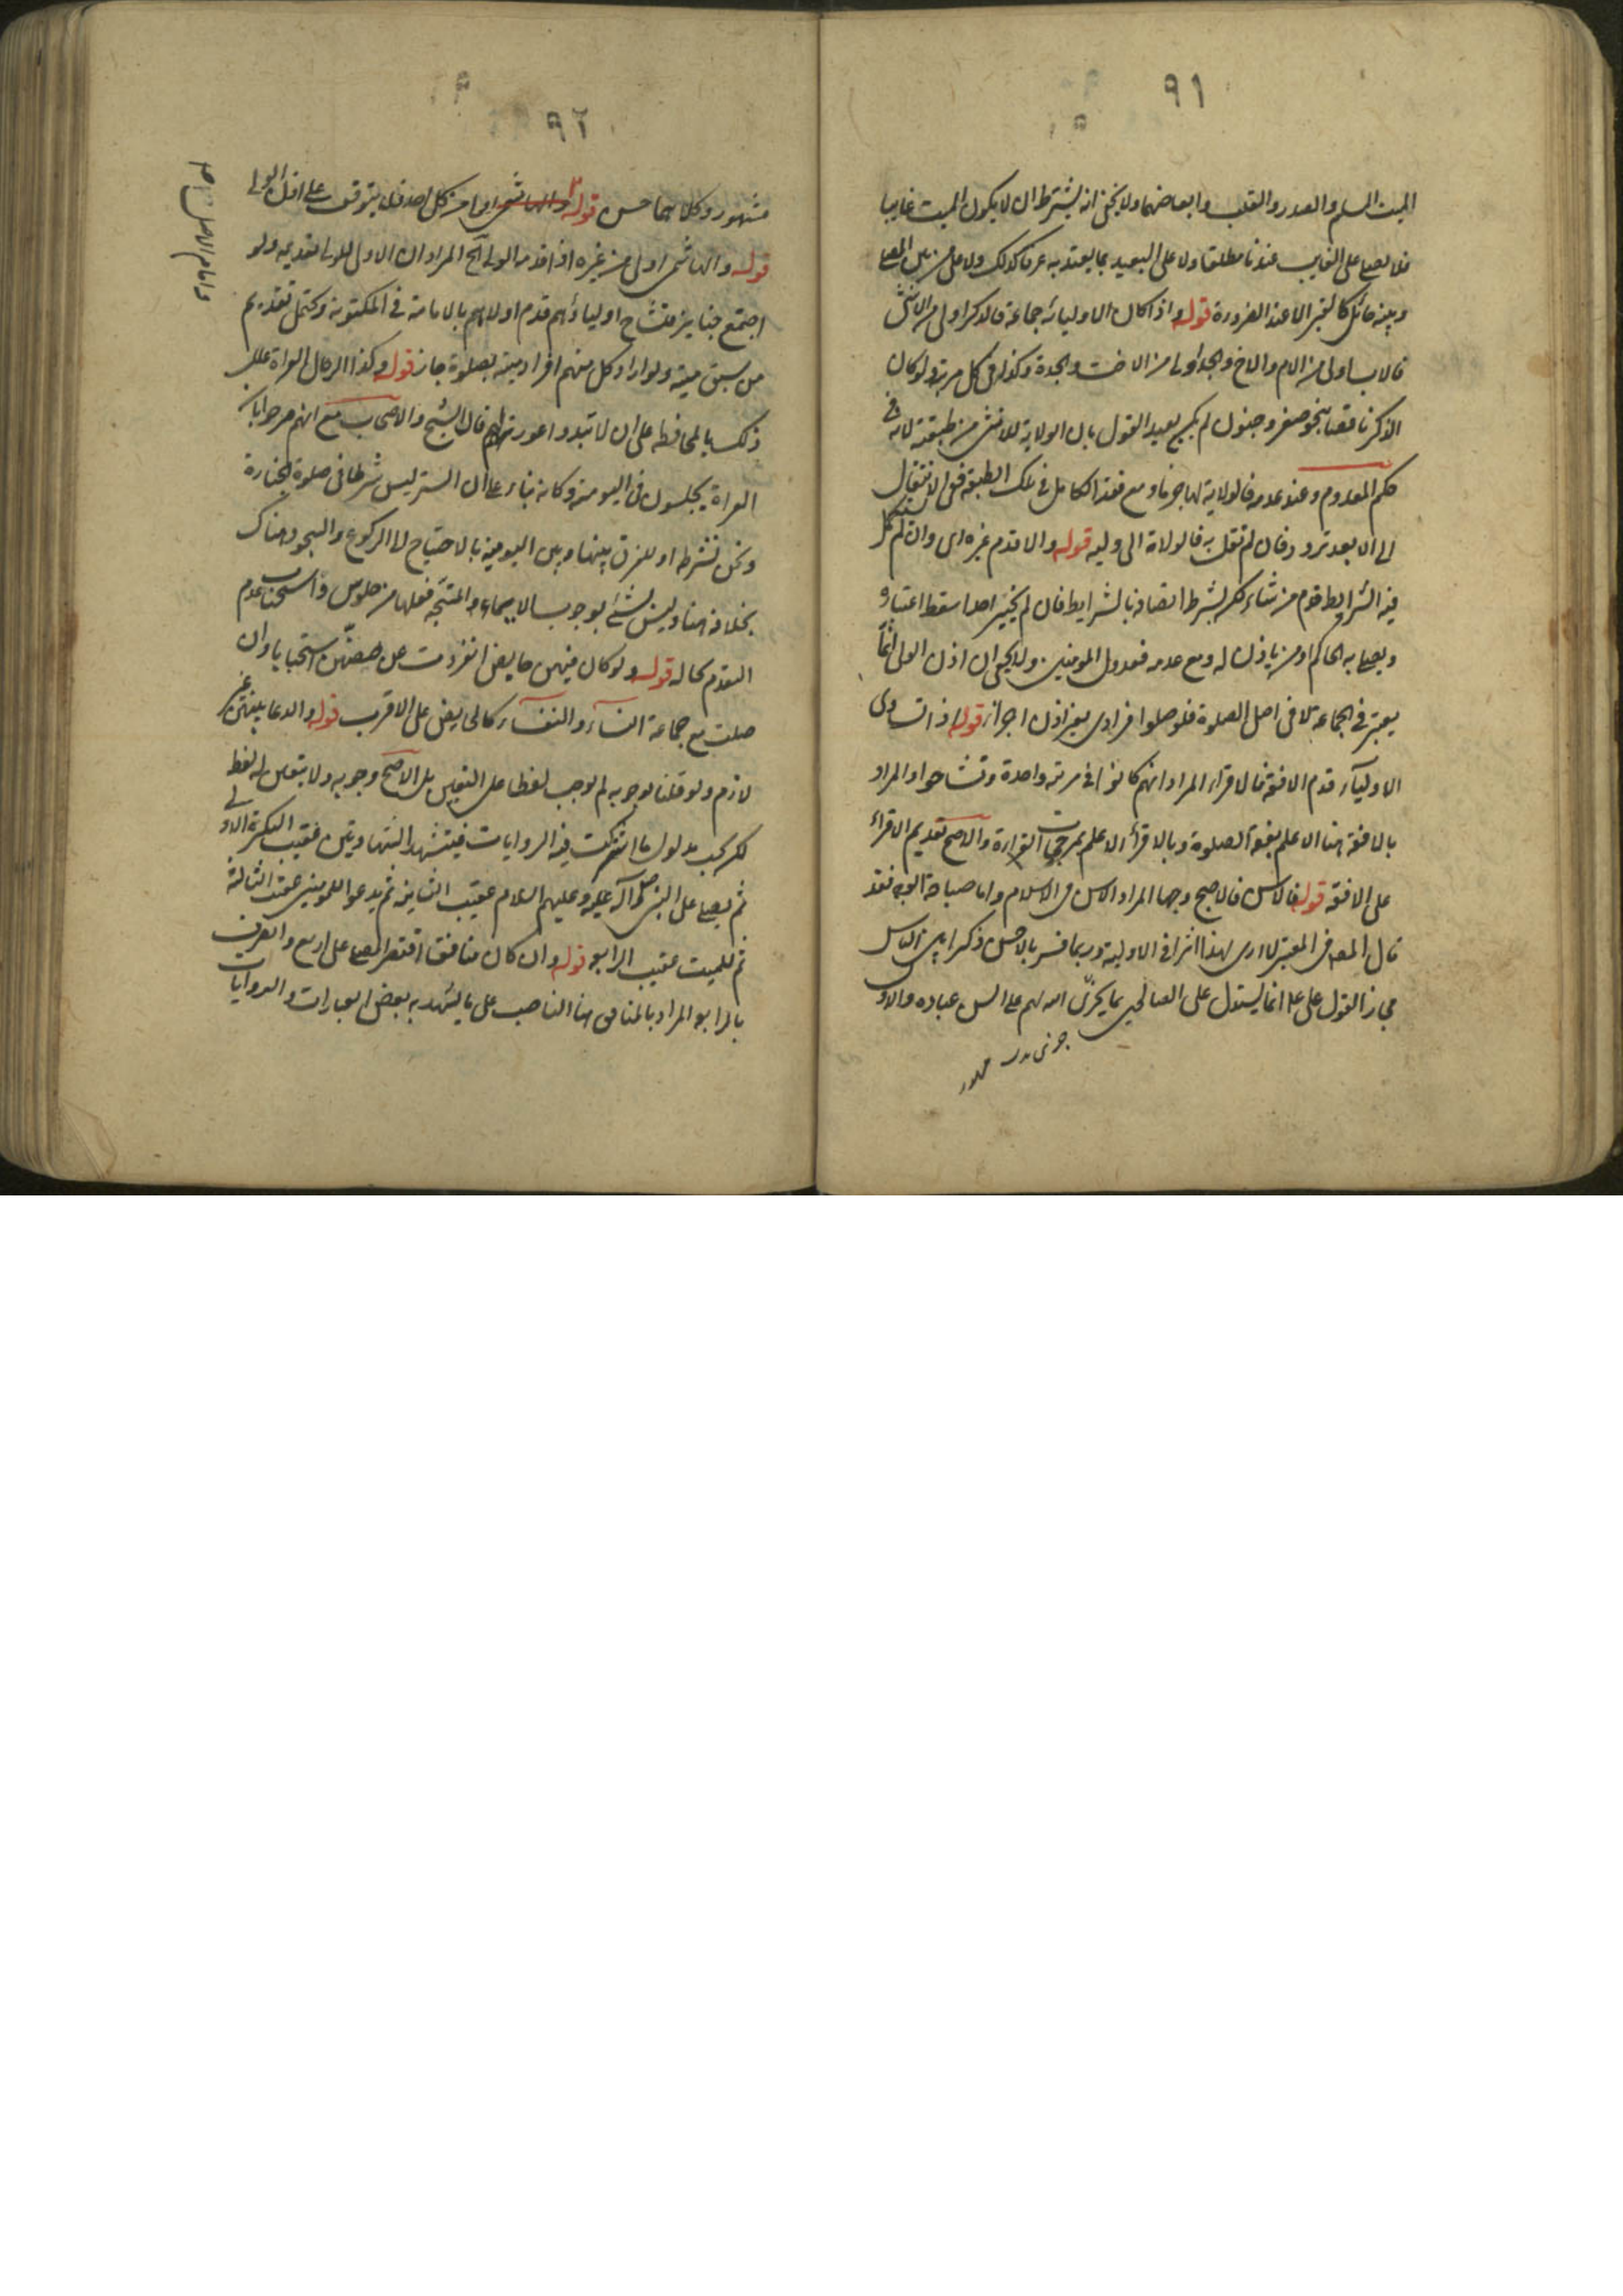 ٩١
الميت المسلم والصدر والقلب وابعاضهما ولا يخفى انه يشترط ان لا يكون الميت غايبا
فلا يصلى على الغايب عندنا مطلقا ولا على البعيد بما يعتد به عرفا كذلك ولا على من بين المصلى
وبينه حائل كالقبر الا عند الضرورة قوله واذا كان الاولياء جماعة فالذكر اولى من الانثى
فالاب اولى من الام والاخ والجد اولى من الاخت والجدة وكذا في كل مرتبة ولو كان
الذكر ناقصا بنحو صغر وجنون لم يكن بعيد القول بان الولاية للانثى من طبقته لانه في
حكم المعدوم وعند عدمه فالولاية لها جزما ومع فقد الكامل في تلك الطبقة ففي الانتقال
الى الابعد تردد فان لم نقل به فالولاية الى وليه قوله والا قدم غيره اى وان لم تستكمل
فيه الشرايط قدم من شاء لكن بشرط اتصافه بالشرايط فان لم يختر احدا سقط اعتباره
ويصلى به الحاكم او من ياذن له ومع عدمه فعدول المومنين ولا يخفى ان اذن الولى انما
يعتبر في الجماعة لا في اصل الصلوة فلو صلوا فرادى بغير اذن اجزأ قوله اذا تساوى
الاولياء قدم الافقه فالاقراء المراد انهم كانوا في مرتبة واحدة وتشاحوا والمراد
بالافقه هنا الاعلم بفقه الصلوة وبالاقرأ الاعلم بمرجحات القراءة والاصح تقديم الاقراء
على الافقه قوله فالاسن فالاصبح وجها المراد الاسن في الاسلام واما صباحة الوجه فقد
قال المصـ في المعتبر لا ارى لهذا اثرا في الاولوية وربما فسر بالاحسن ذكرا بين الناس
مجازا لقول على ع انما يستدل على الصالحين بما يجرى الله لهم على السن عباده والاول
٩٢
مشهور وكلاهما حسن قوله
قوله والهاشمى اولى من غيره اذا قدمه الولى الخ المراد ان الاولى للولى تقديمه ولو
اجتمع جنايز فتشاح اولياؤهم قدم اولاهم بالامامة في المكتوبة ويحتمل تقديم
من سبق ميته ولو اراد كل منهم افراد ميته بصلوة جاز قوله وكذا الرجال العراة علل
ذلك بالمحافظة على ان لا تبدو عورتهم قال الشيخ والاصحاب مع انهم صرحوا بان
العراة يجلسون في اليومية وكانه بناء على ان الستر ليس شرطا في صلوة الجنازة
ونحن نشترطه او للفرق بينها وبين اليومية بالاحتياج الى الركوع والسجود هناك
بخلافه هنا وليس بشئ لوجوب الايماء والمتجه فعلها من جلوس واستحباب عدم
التقدم بحاله قوله ولو كان فيهن حايض انفردت عن صفهن استحبابا وان
صلت مع جماعة النساء والنفساء كالحايض على الاقرب قوله والدعا بينهن غير
لازم ولو قلنا بوجوبه لم نوجب لفظا على التعيين بل الاصح وجوبه ولا يتعين له لفظ
لكن يجب مدلول ما اشتركت فيه الروايات فيتشهد الشهادتين عقيب التكبيرة الاولى
ثم يصلى على النبى صلى الله عليه وعليهم السلام عقيب الثانية ثم يدعو للمومنين عقيب الثالثة
ثم للميت عقيب الرابعة قوله وان كان منافقا اقتصر المصلى على اربع وانصرف
بالرابعة المراد بالمنافق هنا الناصب على ما يشهد به بعض العبارات والروايات